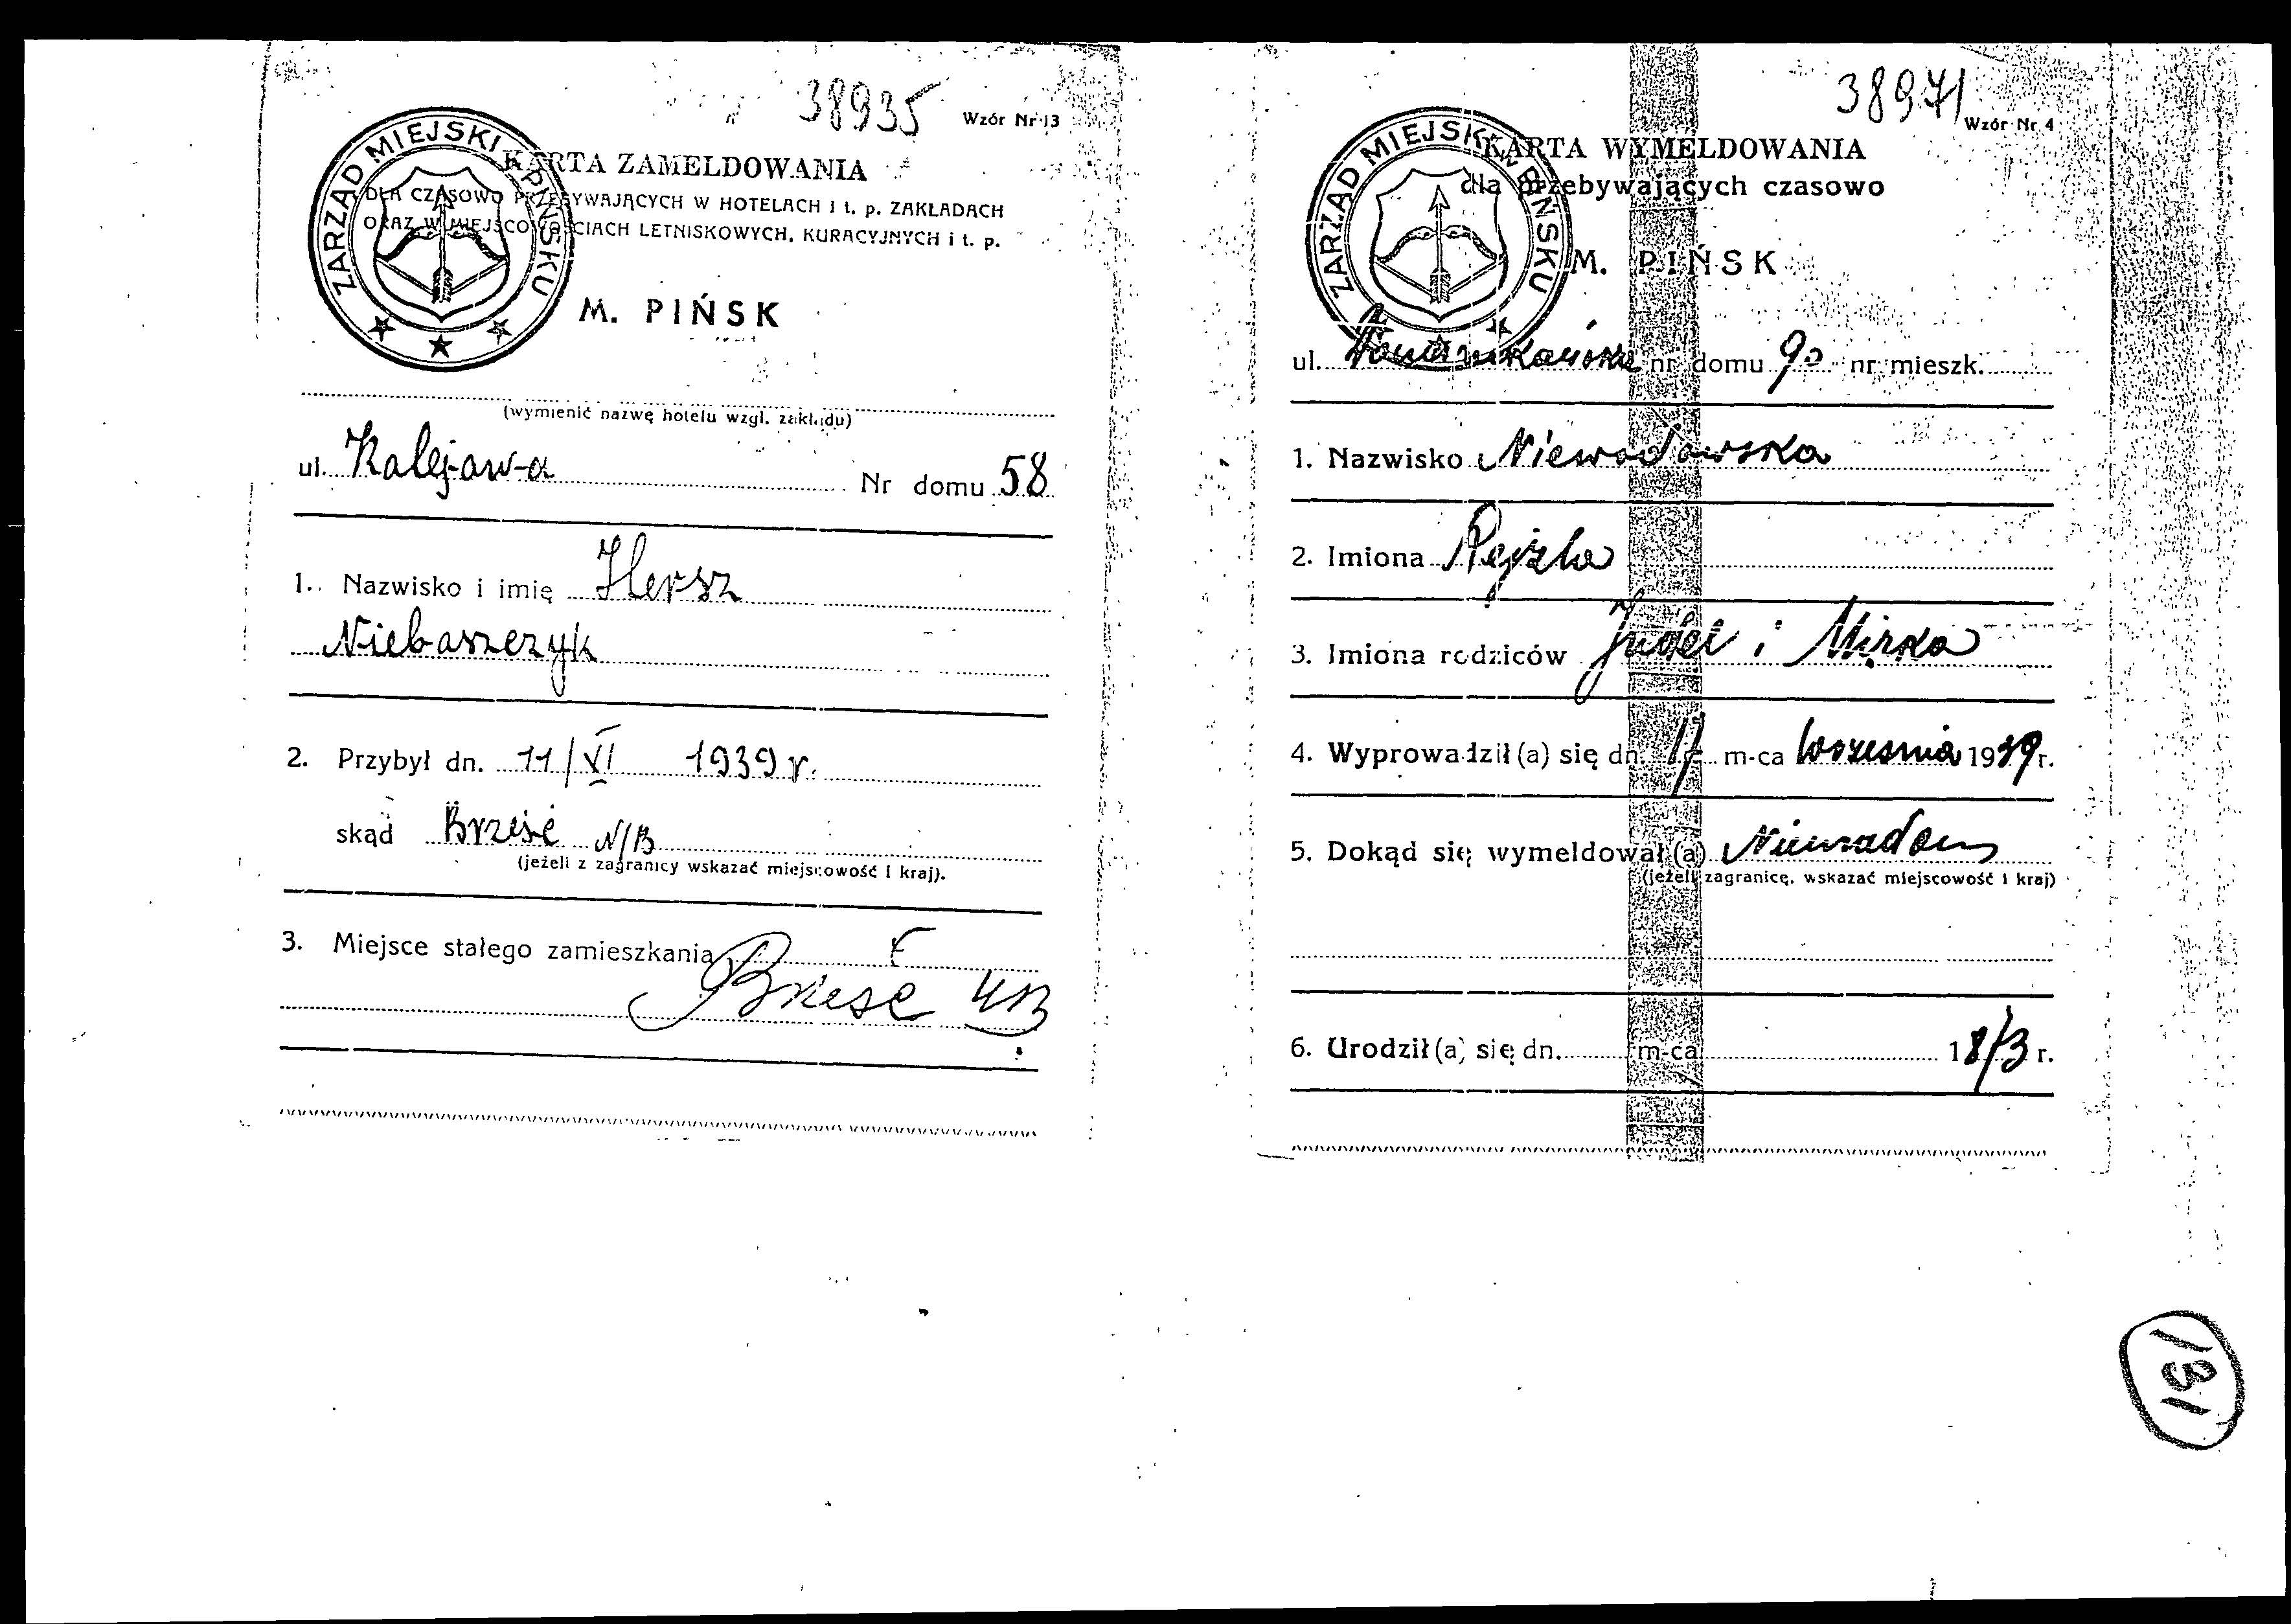 38935
Wzór Nr 13
ZARZĄD MIEJSKI W PIŃSKU
KARTA ZAMELDOWANIA
DLA CZASOWO PRZEBYWAJĄCYCH W HOTELACH I t. p. ZAKŁADACH
ORAZ W MIEJSCOWOŚCIACH LETNISKOWYCH, KURACYJNYCH i t. p.
M. PIŃSK
(wymienić nazwę hotelu wzgl. zakładu)
ul. Kalejawa Nr domu 58
1. Nazwisko i imię Hersz
Niebaszczyk
2. Przybył dn. 11/VI 1939 r.
skąd Brześć N/B
(jeżeli z zagranicy wskazać miejscowość i kraj).
3. Miejsce stałego zamieszkania
Brześć
38971
Wzór Nr 4
ZARZĄD MIEJSKI W PIŃSKU
KARTA WYMELDOWANIA
dla przebywających czasowo
M. PIŃSK
ul. nr domu 90 nr mieszk.
1. Nazwisko Niewadowska
2. Imiona Rejzla
3. Imiona rodziców Judel i Mirka
4. Wyprowadził (a) się dn. m-ca września 1939 r.
5. Dokąd się wymeldował (a) Niewiadom
(jeżeli zagranicę, wskazać miejscowość i kraj)
6. Urodził (a) się dn. m-ca 18 r.
131